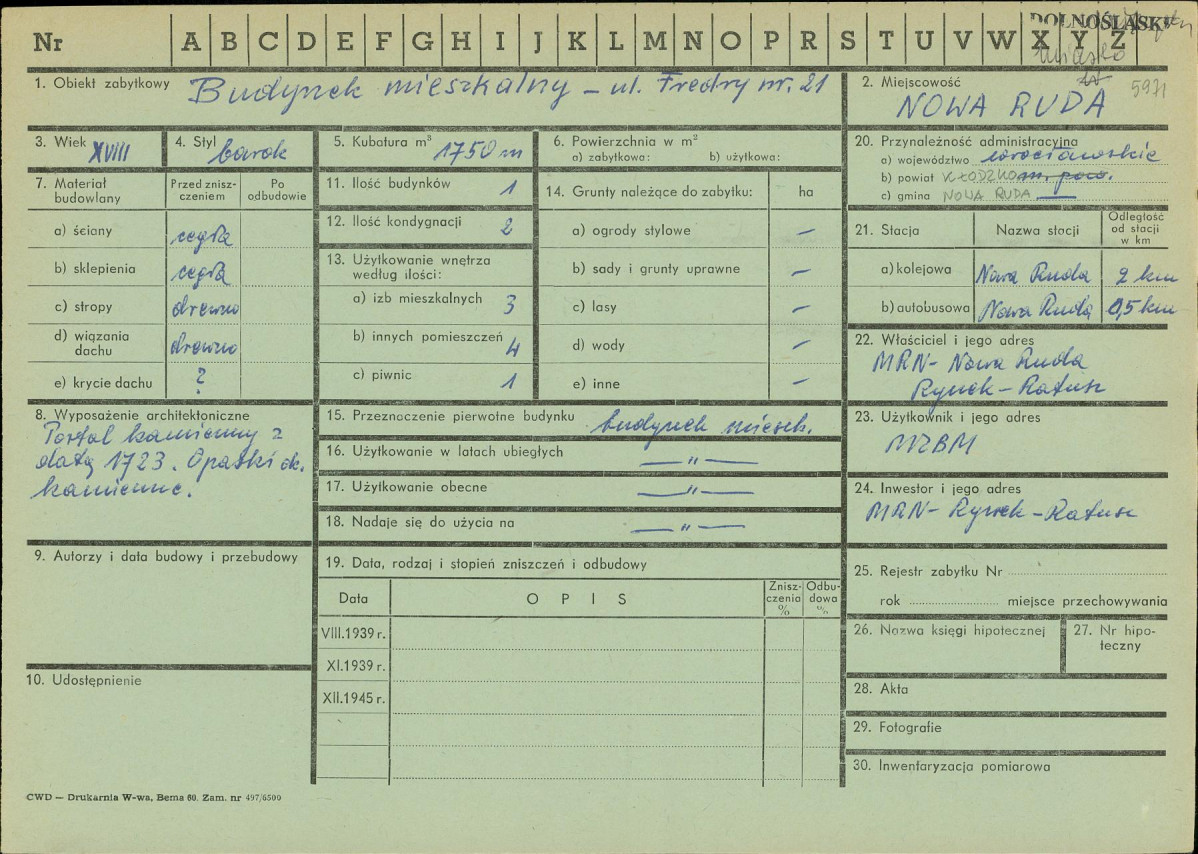 DOLNOŚLĄSKI
Nr A B C D E F G H I J K L M N O P R S T U V W X Y Z
miasto
5971
1. Obiekt zabytkowy Budynek mieszkalny – ul. Fredry nr. 21
2. Miejscowość
NOWA RUDA
3. Wiek XVIII
4. Styl barok
5. Kubatura m³ 1750 m
6. Powierzchnia w m²
a) zabytkowa: b) użytkowa:
20. Przynależność administracyjna
a) województwo wrocławskie
b) powiat KŁODZKO m. pow.
c) gmina NOWA RUDA —
7. Materiał budowlany
Przed znisz-
czeniem
Po
odbudowie
a) ściany cegła
b) sklepienia cegła
c) stropy drewno
d) wiązania
dachu drewno
e) krycie dachu ?
11. Ilość budynków 1
12. Ilość kondygnacji 2
13. Użytkowanie wnętrza
według ilości:
a) izb mieszkalnych 3
b) innych pomieszczeń 4
c) piwnic 1
14. Grunty należące do zabytku: ha
a) ogrody stylowe –
b) sady i grunty uprawne –
c) lasy –
d) wody –
e) inne –
21. Stacja Nazwa stacji
Odległość
od stacji
w km
a) kolejowa Nowa Ruda 2 km
b) autobusowa Nowa Ruda 0,5 km
22. Właściciel i jego adres
MRN - Nowa Ruda
Rynek - Ratusz
8. Wyposażenie architektoniczne
Portal kamienny z
datą 1723. Opaski ok.
kamienne.
15. Przeznoczenie pierwotne budynku budynek mieszk.
16. Użytkowanie w latach ubiegłych — " —
17. Użytkowanie obecne — " —
18. Nadaje się do użycia na — " —
23. Użytkownik i jego adres
MZBM
24. Inwestor i jego adres
MRN - Rynek - Ratusz
9. Autorzy i data budowy i przebudowy
10. Udostępnienie
19. Data, rodzaj i stopień zniszczeń i odbudowy
Data OPIS
Znisz-
czenia
%
Odbu-
dowa
%
VIII.1939 r.
XI.1939 r.
XII.1945 r.
25. Rejestr zabytku Nr
rok miejsce przechowywania
26. Nazwa księgi hipotecznej
27. Nr hipo-
teczny
28. Akta
29. Fotografie
30. Inwentaryzacja pomiarowa
CWD — Drukarnia W-wa, Bema 60. Zam. nr 497/6500